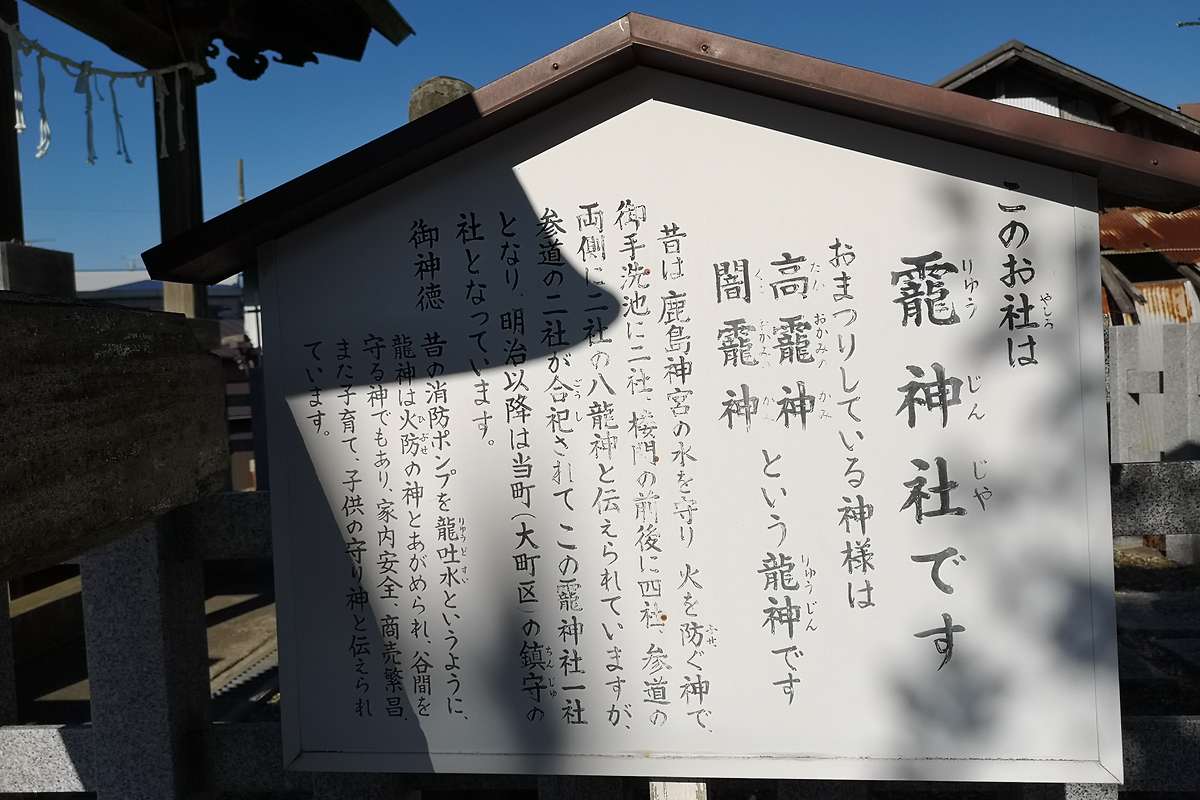 このお社は
龗神社です
おまつりしている神様は
高龗神
闇龗神
という龍神です
昔は鹿島神宮の水を守り 火を防ぐ神で、
御手洗池に二社、楼門の前後に四社、参道の
両側に二社の八龍神と伝えられていますが、
参道の二社が合祀されてこの龗神社一社
となり、明治以降は当町(大町区)の鎮守の
社となっています。
御神徳
昔の消防ポンプを龍吐水というように、
龍神は火防の神とあがめられ、谷間を
守る神でもあり、家内安全、商売繁昌、
また子育て、子供の守り神と伝えられ
ています。